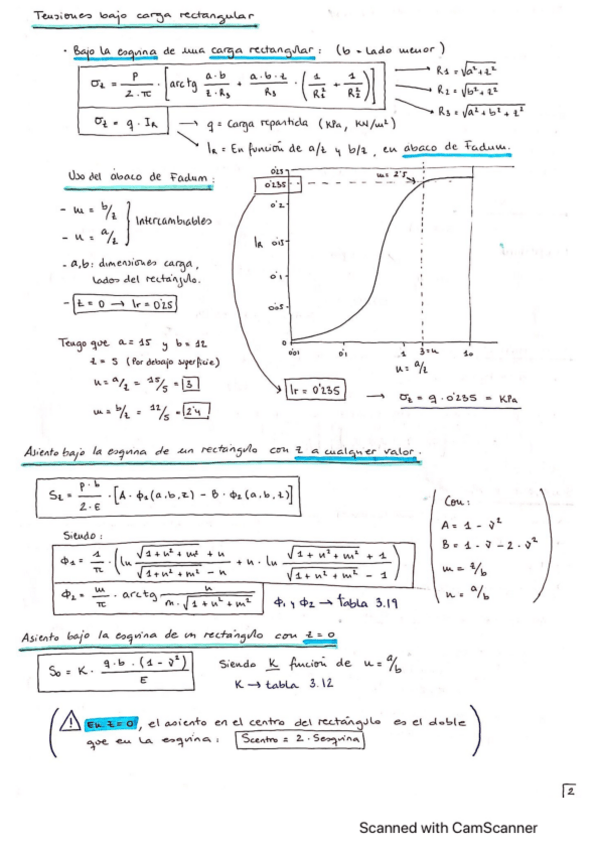 Tensiones bajo carga rectangular
· Bajo la esquina de una carga rectangular: (b = lado menor)
σz = P / 2·π · [arctg a·b / z·R3 + a·b·z / R3 · (1 / R1² + 1 / R2²)]
→ R1 = √a²+z²
→ R2 = √b²+z²
→ R3 = √a²+b²+z²
σz = q · IR → q = Carga repartida (KPa, KN/m²)
→ IR = En función de a/z y b/z, en abaco de Fadum.
Uso del ábaco de Fadum:
- m = b/z
- n = a/z } Intercambiables
- a,b: dimensiones carga,
lados del rectángulo.
- z = 0 → Ir = 0'25
Tengo que a = 15 y b = 12
z = 5 (Por debajo superficie)
n = a/z = 15/5 = 3
m = b/z = 12/5 = 2'4
0'25
0'235
0'2
IR 0'15
0'1
0'05
0
m = 2'5
0'01 0'1 1 3=n 10
n = a/z
Ir = 0'235 → σz = q · 0'235 = KPa
Asiento bajo la esquina de un rectángulo con z a cualquier valor.
Sz = P·b / 2·E · [A · ϕ1(a,b,z) - B · ϕ2(a,b,z)]
Siendo:
ϕ1 = 1/π · (ln √1+n²+m² + n / √1+n²+m² - n + n · ln √1+n²+m² + 1 / √1+n²+m² - 1)
ϕ2 = m/π · arctg n / m·√1+n²+m²
ϕ1 y ϕ2 → tabla 3.19
Con:
A = 1 - ν²
B = 1 - ν - 2·ν²
m = z/b
n = a/b
Asiento bajo la esquina de un rectángulo con z=0
S0 = K · q·b·(1-ν²) / E
Siendo K función de n = a/b
K → tabla 3.12
⚠ En z=0, el asiento en el centro del rectángulo es el doble
que en la esquina: Scentro = 2 · Sesquina
2
Scanned with CamScanner